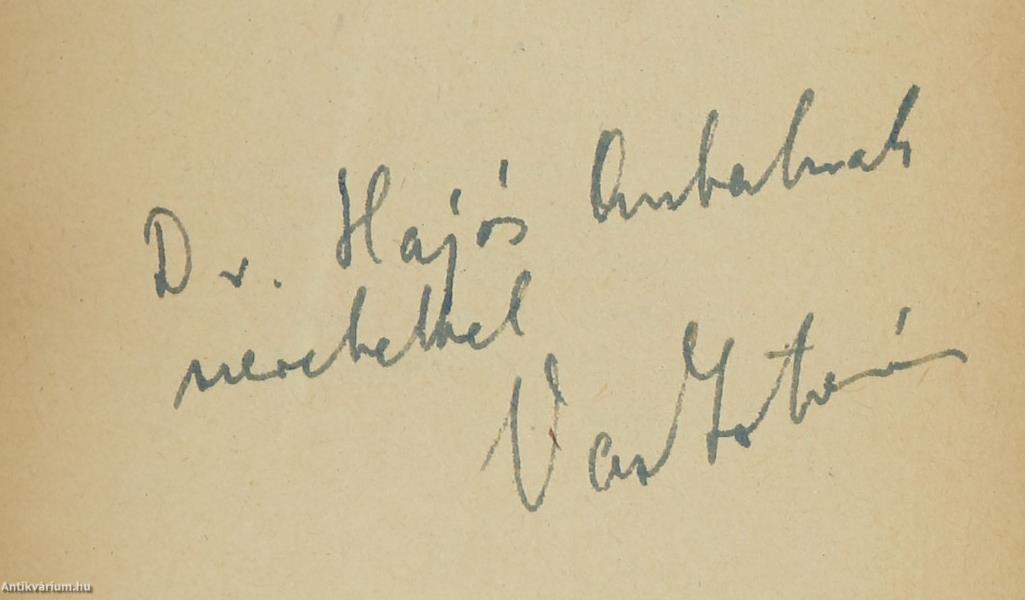 Dr. Hajós Antalnak
szeretettel
Vas István
Antikvárium.hu